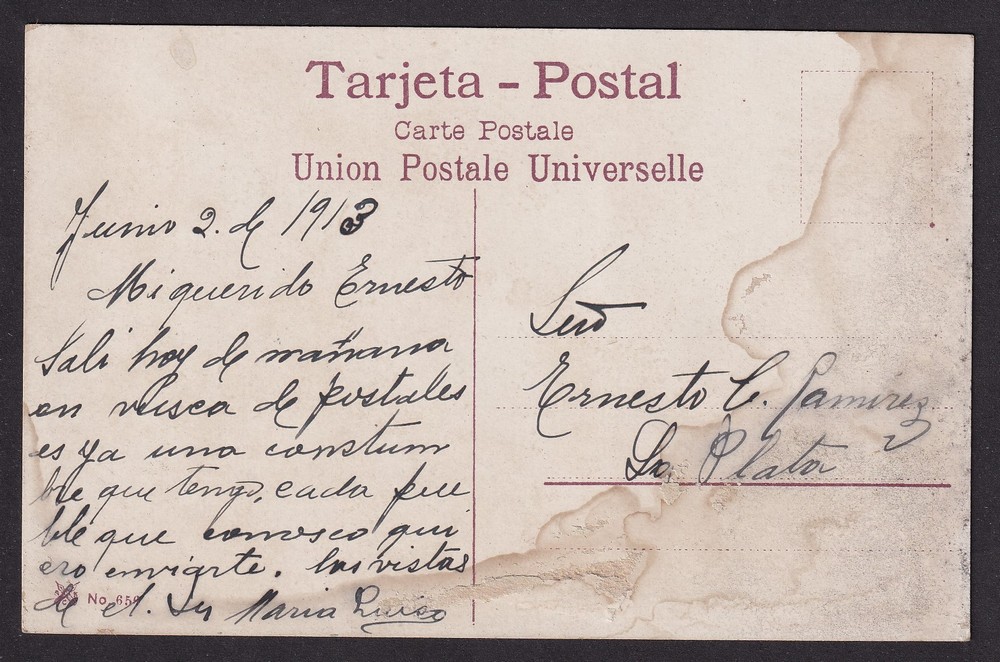 Tarjeta - Postal
Carte Postale
Union Postale Universelle
Junio 2. de 1913
Mi querido Ernesto
Sali hoy de mañana
en vusca de postales
es ya una constum
bre que tengo, cada pue
ble que conosco qui
ero enviarte. las vistas
de el. Su Maria Luisa
No. 650
Señ
Ernesto C. Ramirez
La Plata